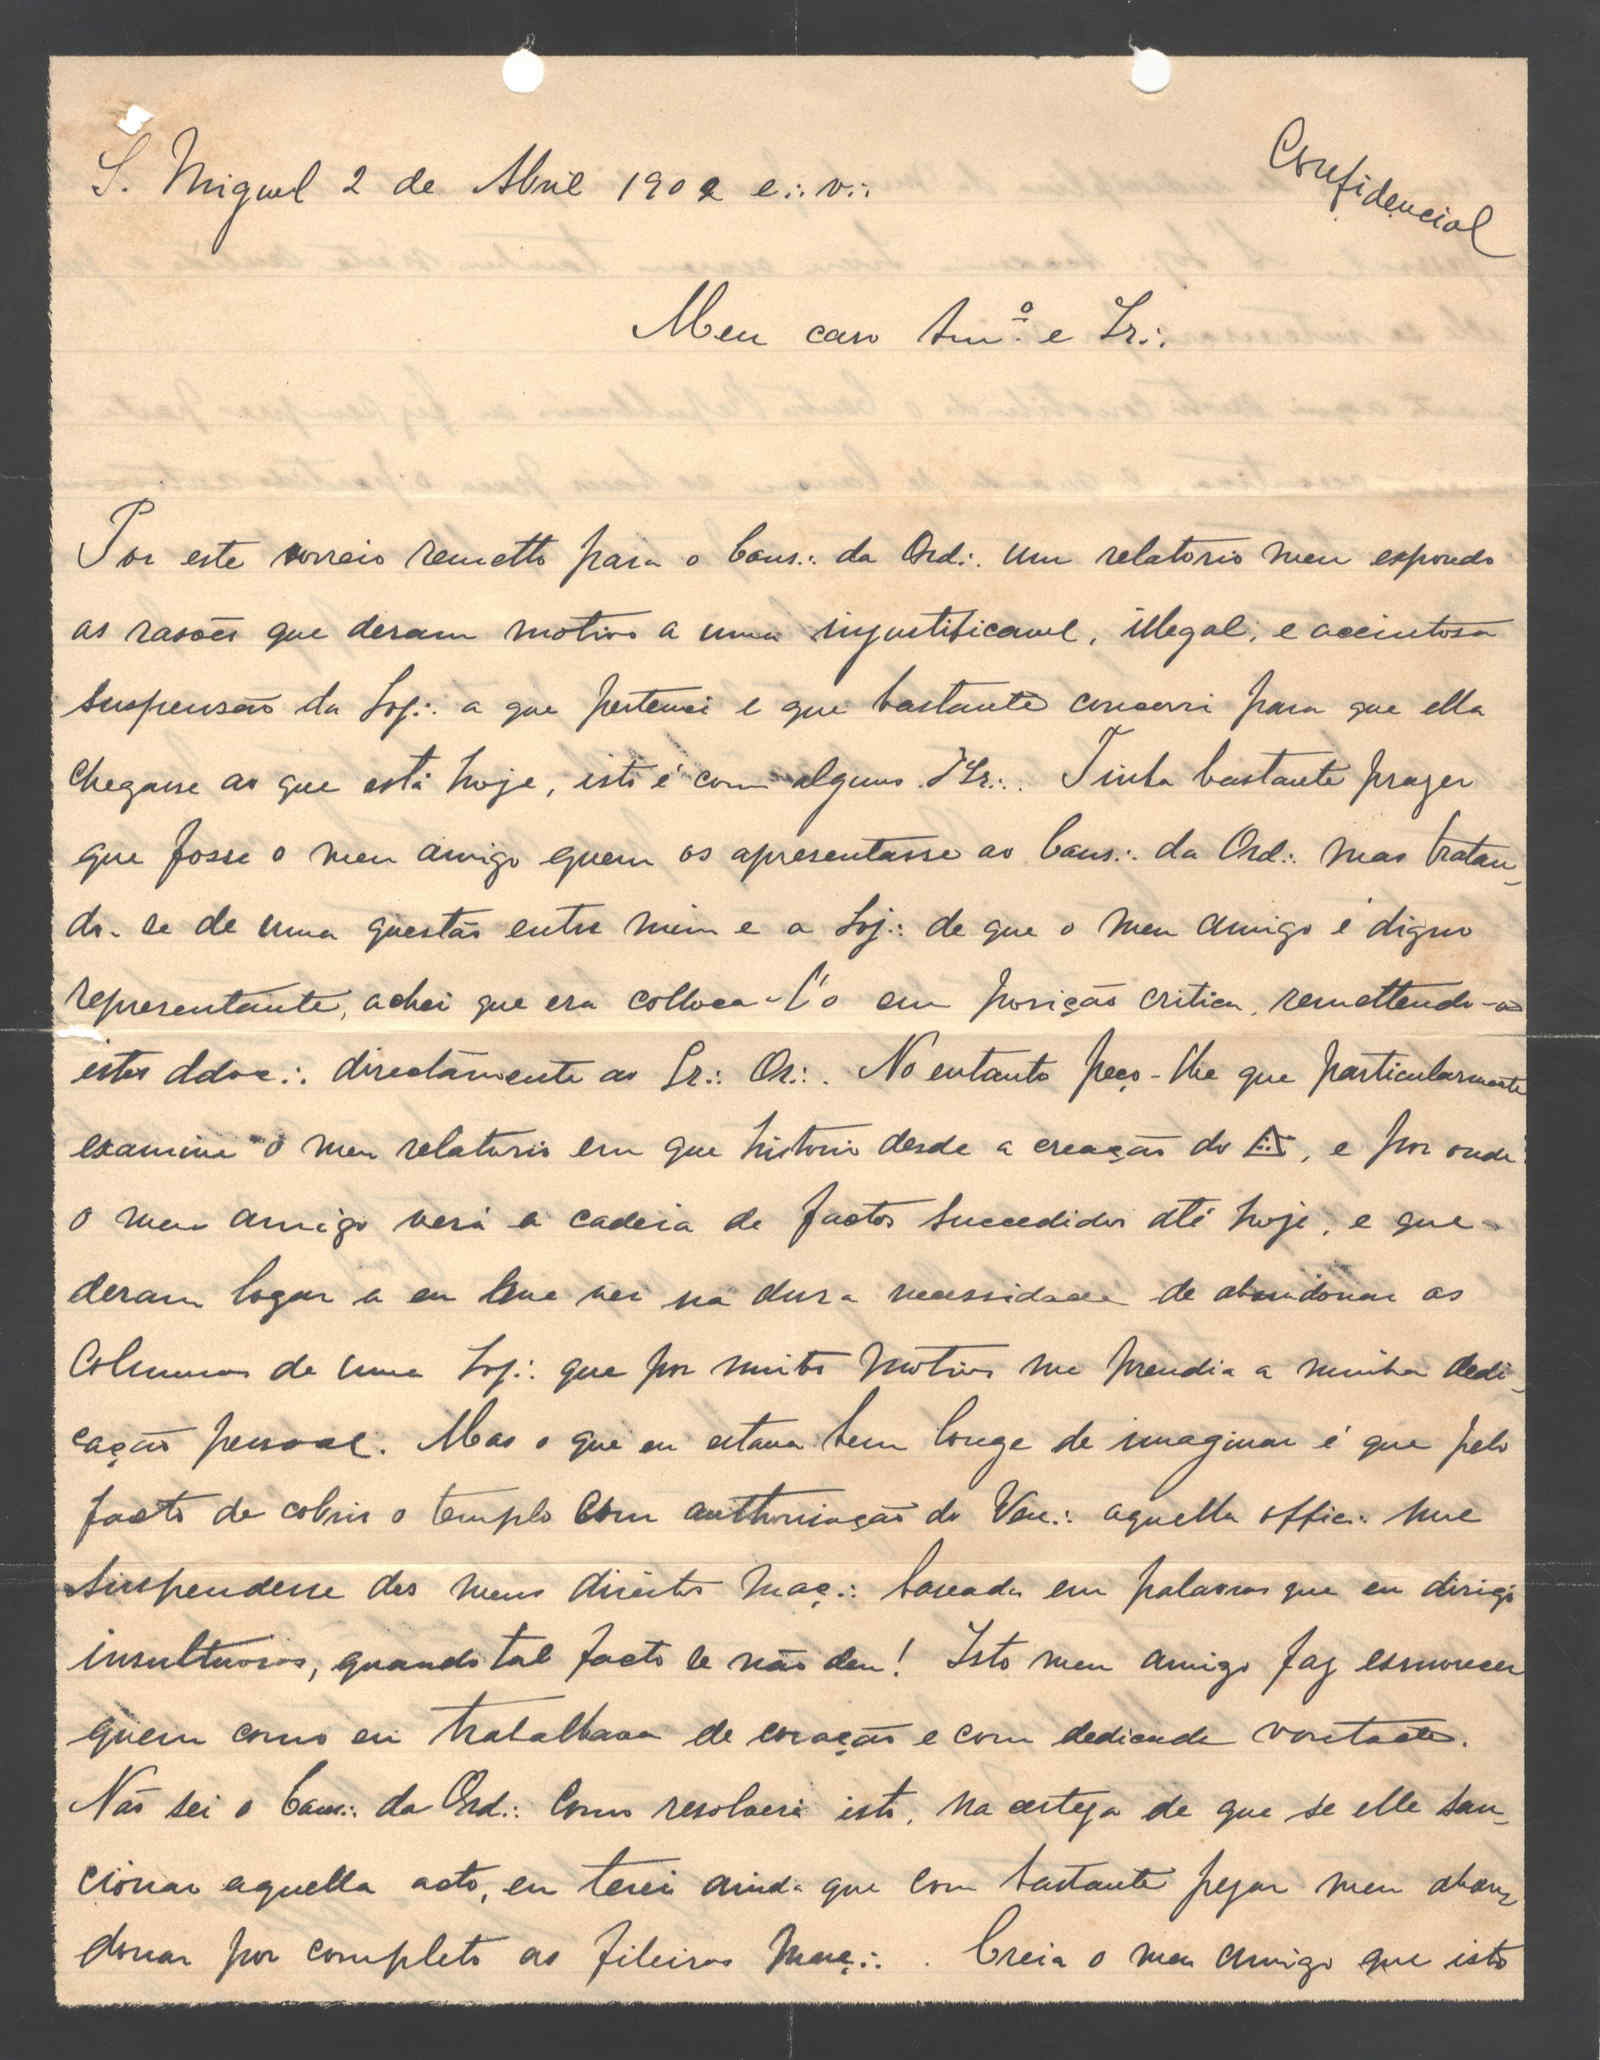 Confidencial
S. Miguel 2 de Abril 1902 e∴ v∴
Meu caro Am.º e Ir∴
Por este correio remetto para o Cons∴ da Ord∴ um relatorio meu expondo
as rasões que deram motivo a uma injustificavel, illegal, e accintosa
suspensão da Loj∴ a que pertenci e que bastante concorri para que ella
chegasse ao que está hoje, isto é com alguns IIr∴. Tinha bastante prazer
que fosse o meu amigo quem os apresentasse ao Cons∴ da Ord∴ mas tratan-
do-se de uma questão entre mim e a Loj∴ de que o meu amigo é digno
representante, achei que era colloca-l'o em posição critica, remettendo-os
estes ddoc∴ directamente ao Gr∴ Or∴. No entanto peço-lhe que particularmente
examine o meu relatorio em que historio desde a creação do △, e por onde
o meu amigo verá a cadeia de factos succedidos até hoje, e que
deram logar a eu me ver na dura necessidade de abandonar as
columnas de uma Loj∴ que por muitos motivos me prendia a minha dedi-
cação pessoal. Mas o que eu estava bem longe de imaginar é que pelo
facto de cobrir o templo com authorisação do Ven∴ aquella offic∴ me
suspendesse dos meus direitos maç∴ baseada em palavras que eu dirigi
insultuosas, quando tal facto se não deu! Isto meu amigo faz esmorecer
quem como eu trabalhava de coração e com dedicada vontade.
Não sei o Cons∴ da Ord∴ como resolverá isto, na certeza de que se elle san-
cionar aquelle acto, eu terei ainda que com bastante pezar meu aban-
donar por completo as fileiras maç∴. Creia o meu amigo que isto